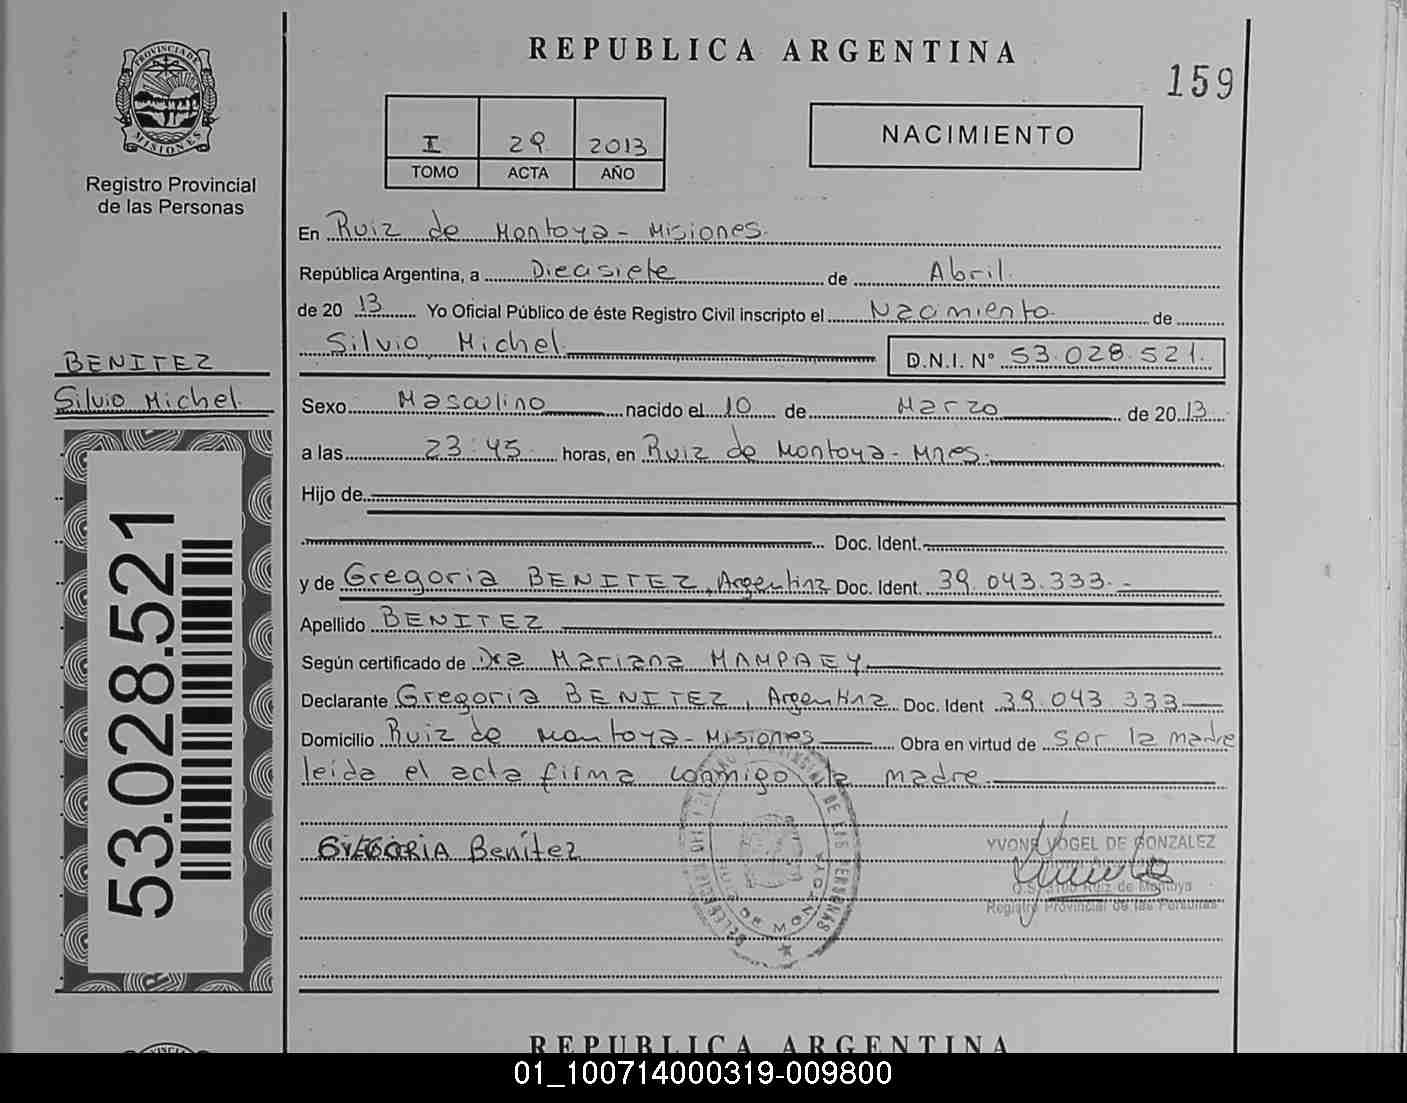 PROVINCIA DE
MISIONES
Registro Provincial
de las Personas
REPUBLICA ARGENTINA
159
I 29 2013
TOMO ACTA AÑO
NACIMIENTO
En Ruiz de Montoya - Misiones.
República Argentina, a Diecisiete de Abril.
de 20 13 Yo Oficial Público de éste Registro Civil inscripto el Nacimiento de
Silvio Michel. D.N.I. N° 53.028.521.
BENITEZ
Silvio Michel.
Sexo Masculino nacido el 10 de Marzo de 2013
a las 23:45 horas, en Ruiz de Montoya - Mnes.
Hijo de
Doc. Ident.
y de Gregoria BENITEZ, Argentina Doc. Ident. 39.043.333.-
Apellido BENITEZ
Según certificado de Dra Mariana MAMPAEY
Declarante Gregoria BENITEZ, Argentina Doc. Ident 39.043.333
Domicilio Ruiz de Montoya - Misiones Obra en virtud de ser la madre
leida el acta firma conmigo la madre.
53.028.521
GREGORIA Benítez
DE LAS PERSONAS
DE MONTOYA
YVONE VOGEL DE GONZALEZ
Ruiz de Montoya
Registro Provincial de las Personas
REPUBLICA ARGENTINA
01_100714000319-009800